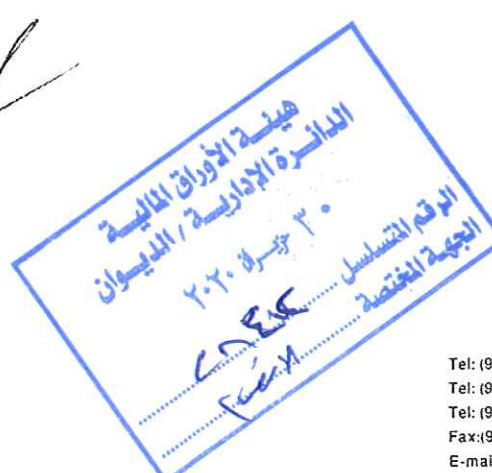 هيئة الأوراق المالية
الدائرة الإدارية / الديوان
٣٠ حزيران ٢٠٢٠
الرقم المتسلسل
الجهة المختصة
Tel: (9
Tel: (9
Tel: (9
Fax:(9
E-mai